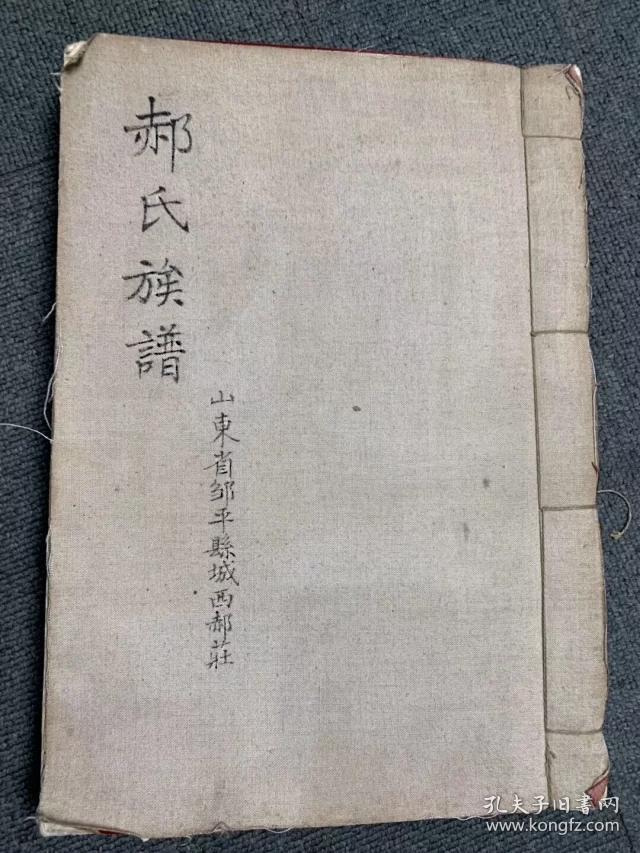 郝氏族譜
山東省邹平縣城西郝莊
孔夫子旧書网
www.kongfz.com